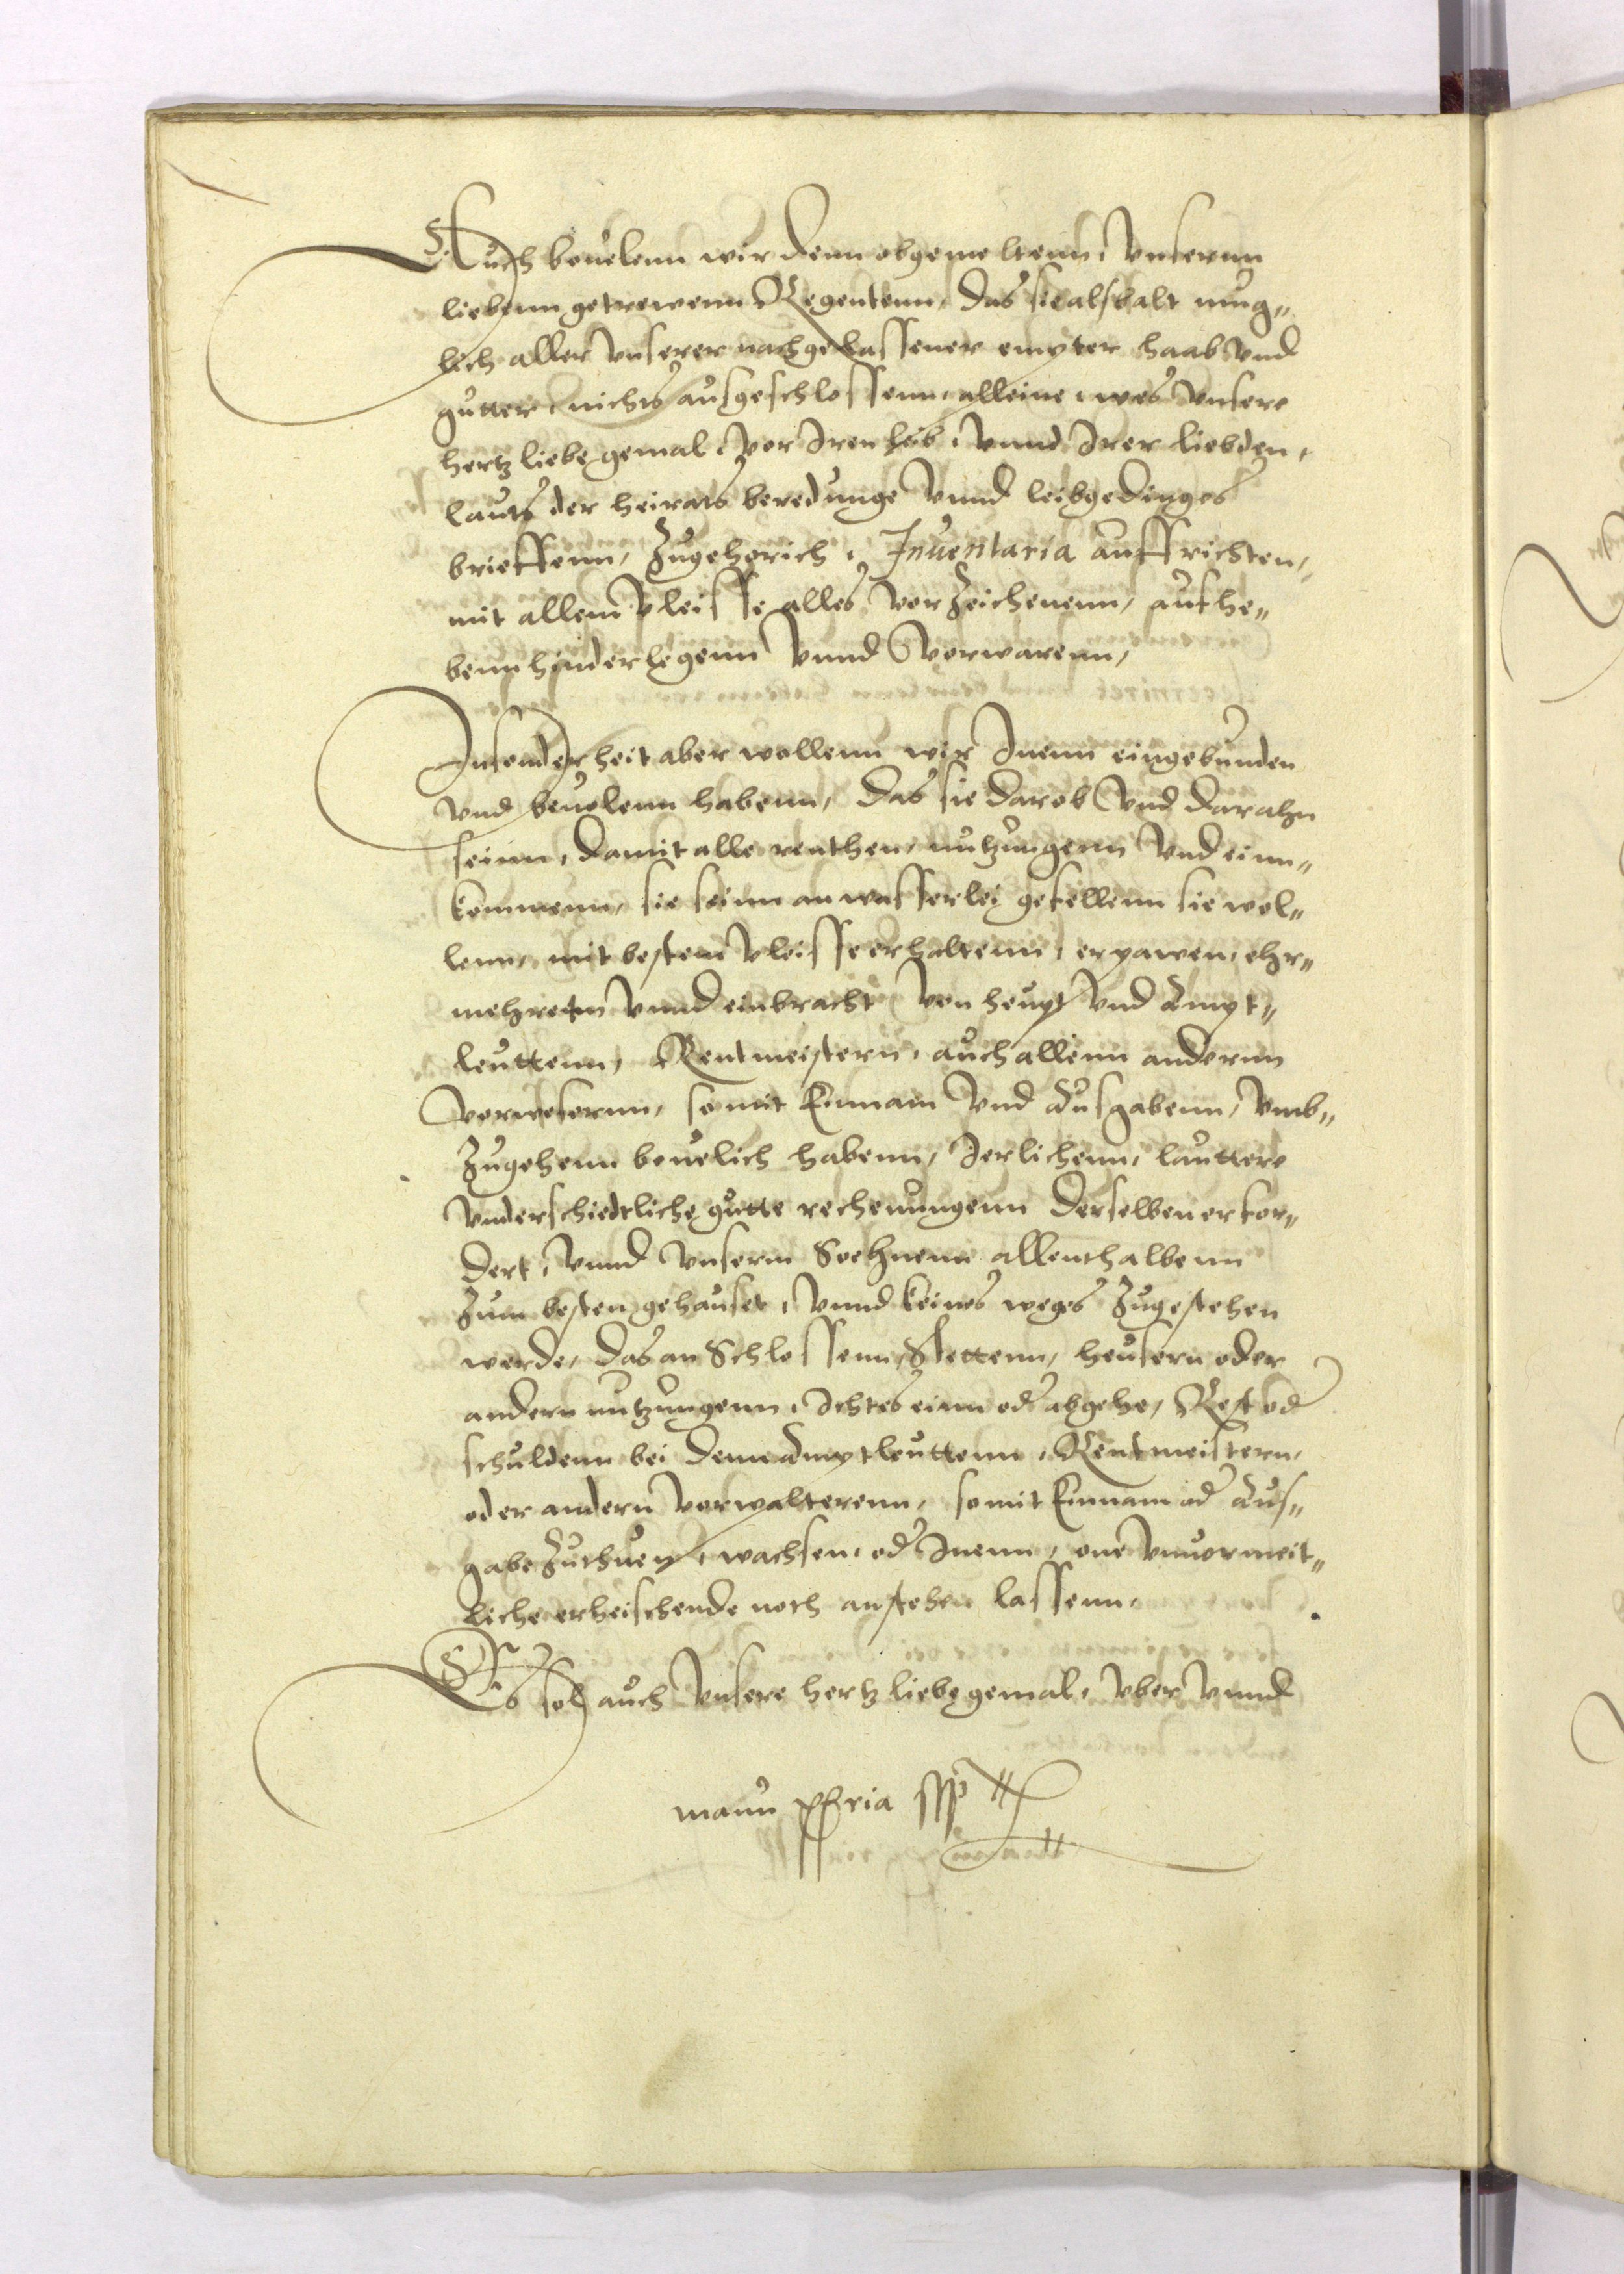 Auch beuelenn wir denn obgemeltenn, vnserenn
liebenn getrewenn Regentenn, das sie alsbalt mug„
lich aller vnserer nachgelassener empter haab vnd
gutter, nichts ausgeschlossenn, alleine, wes vnsere
hertzliebe gemal, vor Iren leib, vnnd Irer liebden,
lauts der heirats beredunge vnnd leibgedinges
brieffenn, zugehorich, Inuentaria auffrichten,
mit allem vleisse alles vorzeichenenn, aufhe„
benn hinderlegenn vnnd vorwarenn,
Insonderheit aber wollenn wir Inenn eingebunden
vnd beuolenn habenn, das sie darob vnd darahn
seinn, damit alle renthen, nutzungenn vnd einn„
kommenn, sie seinn an wasserlei gefellenn sie wol„
lenn, mit bestem vleisse erhaltenn, erpawen, ehr„
mehretn vnnd einbracht von heupt vnd Ampt„
leuttenn, Rentmeistern, auch allenn anderenn
vorweserenn, so mit Einnam vnd Ausgabenn, vmb„
zugehenn beuelich habenn, Jerlichenn, lauttere
vnderschiedtliche gutte rechenungenn derselben erfor„
dert, vnnd vnserm Soehnenn allenthalbenn
zum besten gehauset, vnnd keines weges zugestehen
werde, das an Schlossenn, Stettenn, heusern oder
andern nutzungenn, Ichtes einn od abgehe, Rest od
schuldenn bei denn Amptleuttenn, Rentmeistern,
oder andern vorwalterenn, so mit Einnam od Aus„
gabe zuthuen, wachsen, od Inenn, one vnuormeit„
liche erheischende noth anstehen lassenn,
Es sol auch vnsere hertzliebe gemal, vber vnnd
manu ppria sst